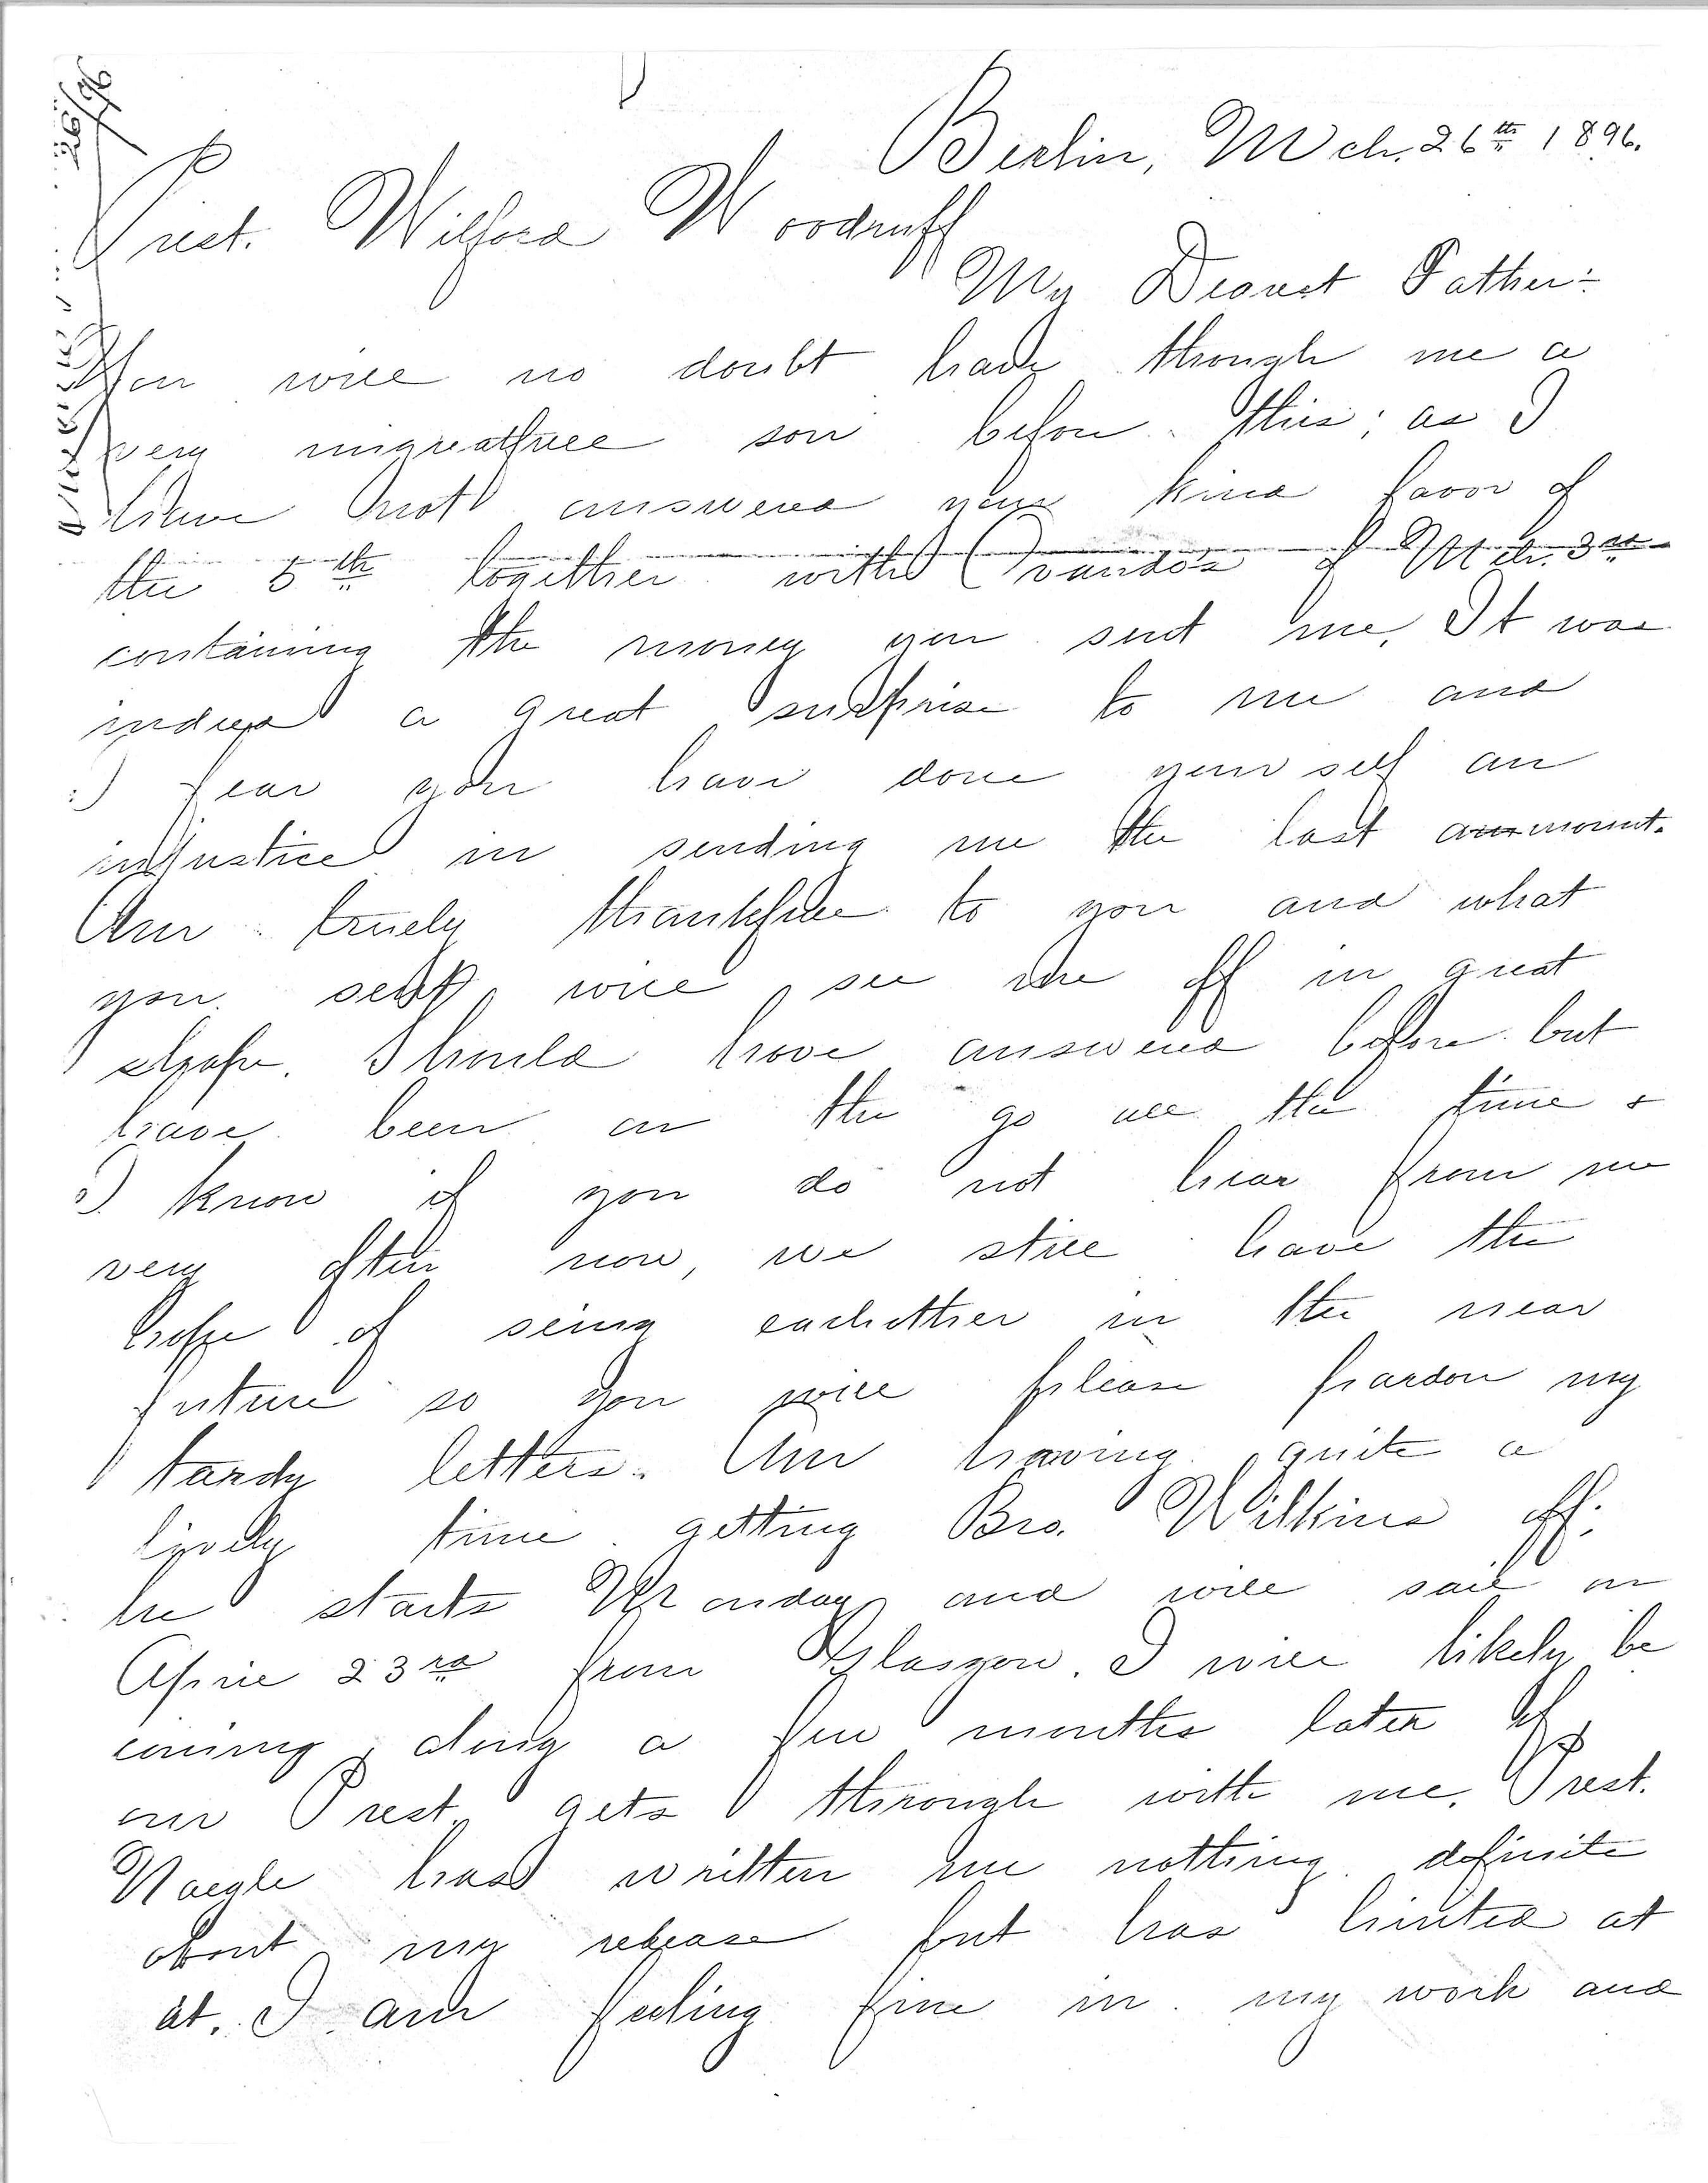 Berlin, Mch. 26th 1896.
Prest. Wilford Woodruff
My Dearest Father:-
You will no doubt have though me a
very ungreatfull son before this; as I
have not answered your kind favor of
the 5th together with Ovando's of Mch. 3rd
containing the money you sent me. It was
indeed a great surprise to me and
I fear you have done your self an
injustice in sending me the last ammount.
Am truely thankfull to you and what
you sent will see me off in great
shape. Should have answered before but
have been on the go all the time &
I know if you do not hear from me
very often now, we still have the
hope of seing eachother in the near
future so you will please pardon my
tardy letters. Am having quite a
lively time getting Bro. Wilkins off;
he starts Monday and will sail on
April 23rd from Glasgow. I will likely be
coming along a few months later if
our Prest. gets through with me. Prest.
Naegle has written me nothing definite
about my release but has hinted at
at. I am feeling fine in my work and